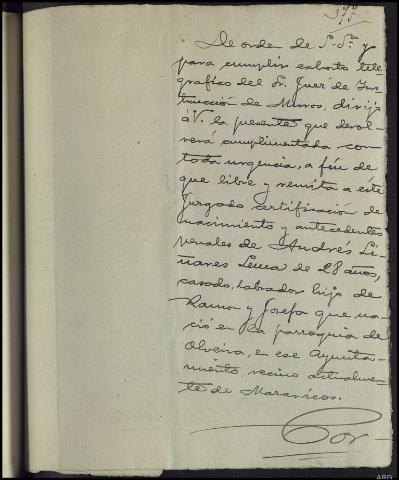 377
De orden de S. Sª. y
para cumplir exhorto tele-
grafico del Sr. Juez de Ins-
trucción de Muros, dirijo
á V. la presente que devol-
verá cumplimentada con
toda urgencia, a fin de
que libre y remita a este
Juzgado certificación de
nacimiento y antecedentes
penales de Andrés Li-
ñares Lema de 28 años,
casado, labrador hijo de
Ramon y Josefa que na-
ció en la parroquia de
Olveira, en ese Ayunta-
miento, vecino actualmen-
te de Mazaricos.
Cor-
ARG